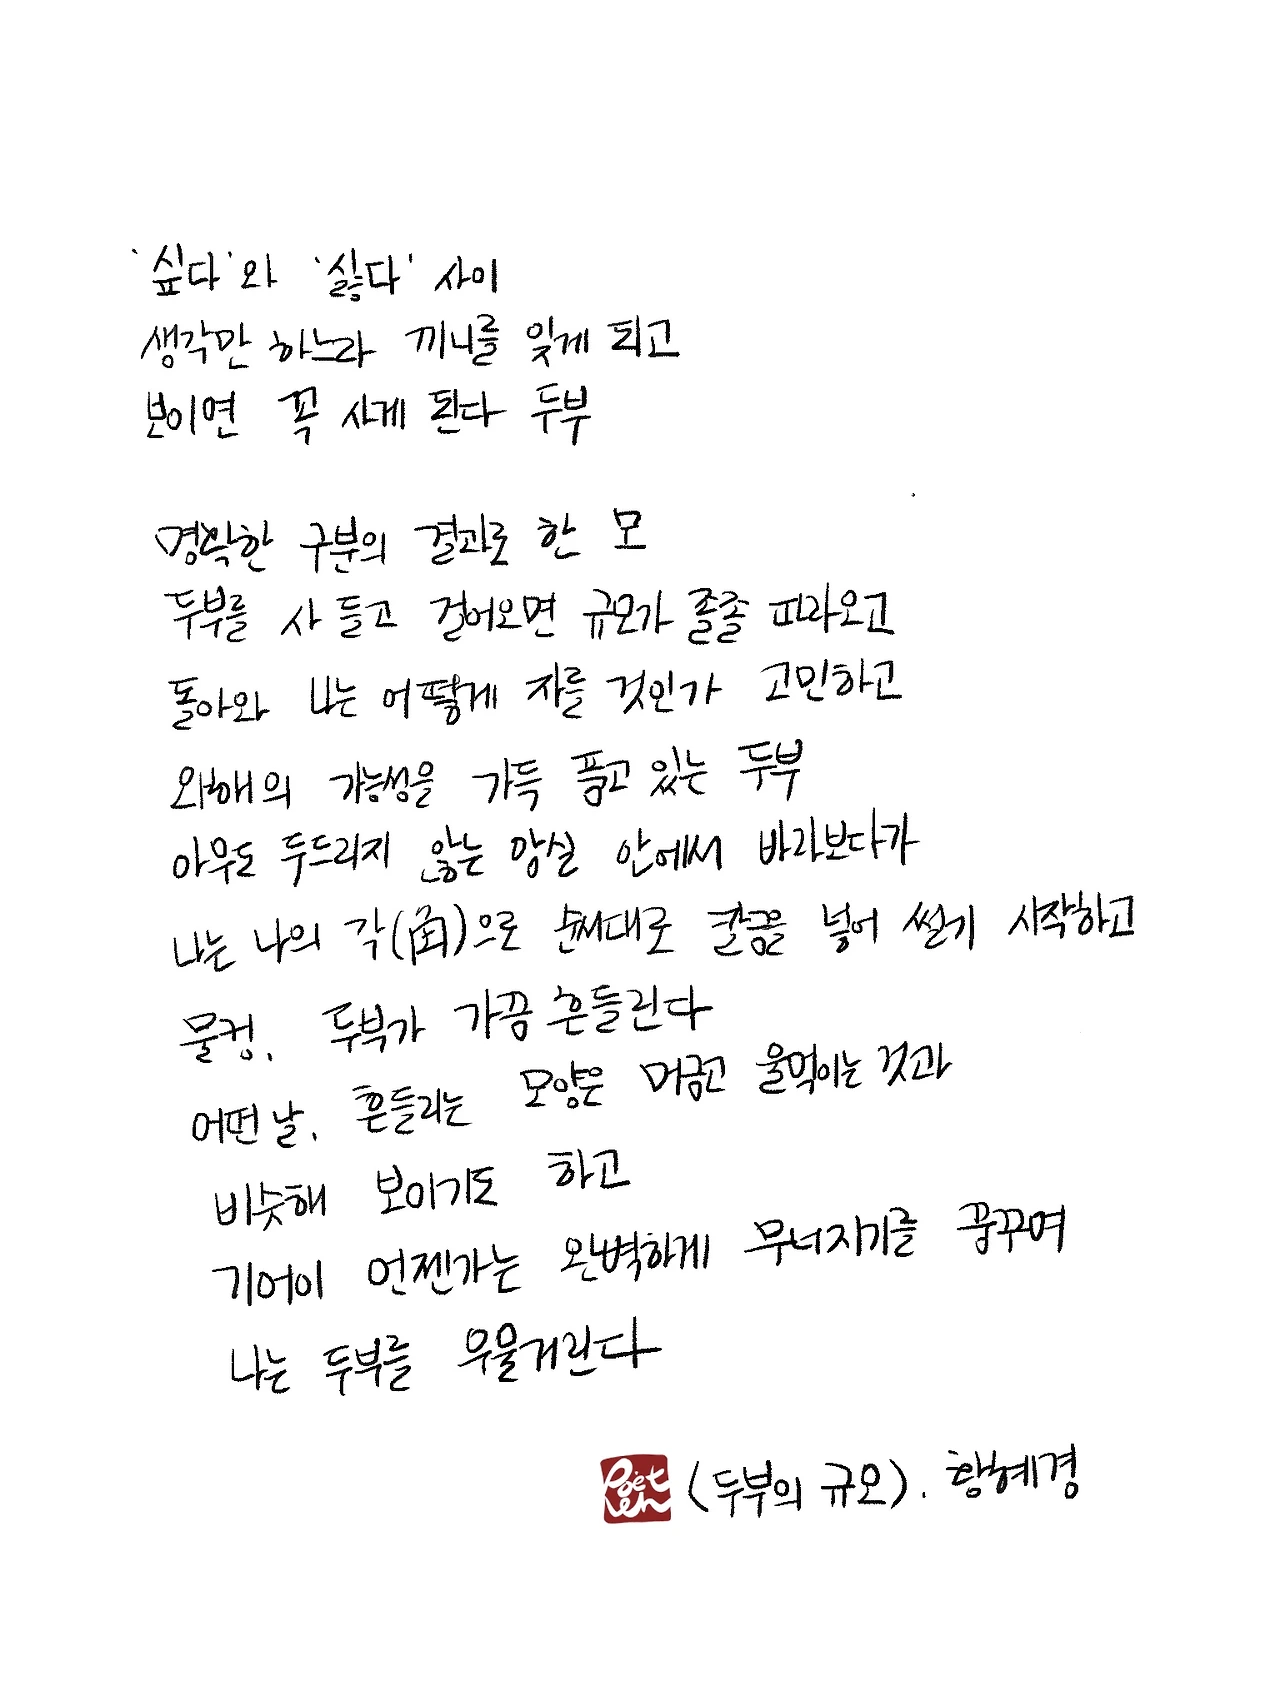 '싶다'와 '싫다' 사이
생각만 하느라 끼니를 잊게 되고
보이면 꼭 사게 된다 두부
명확한 구분의 결과로 한 모
두부를 사 들고 걸어오면 규모가 졸졸 따라오고
돌아와 나는 어떻게 자를 것인가 고민하고
와해의 가능성을 가득 품고 있는 두부
아무도 두드리지 않는 양실 안에서 바라보다가
나는 나의 각(角)으로 순서대로 칼금을 넣어 썰기 시작하고
물컹, 두부가 가끔 흔들린다
어떤 날, 흔들리는 모양은 머금고 울먹이는 것과
비슷해 보이기도 하고
기어이 언젠가는 완벽하게 무너지기를 꿈꾸며
나는 두부를 우물거린다
Poet eh (두부의 규모). 황혜경